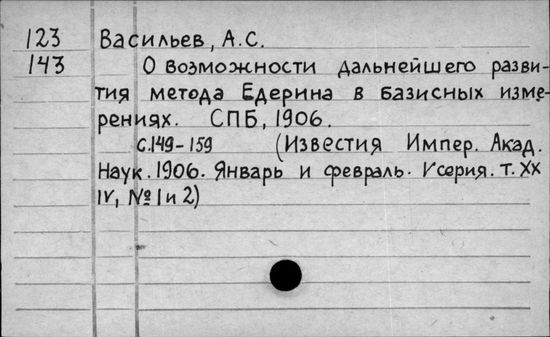 123 Васильев, А.С.
143 О возможности дальнейшего разви-
тия метода Едерина в базисных изме-
рениях. СПБ, 1906.
с.149-159 (Известия Импер. Акад.
Наук. 1906. Январь и февраль. V серия. т. XX
IV, № 1 и 2)